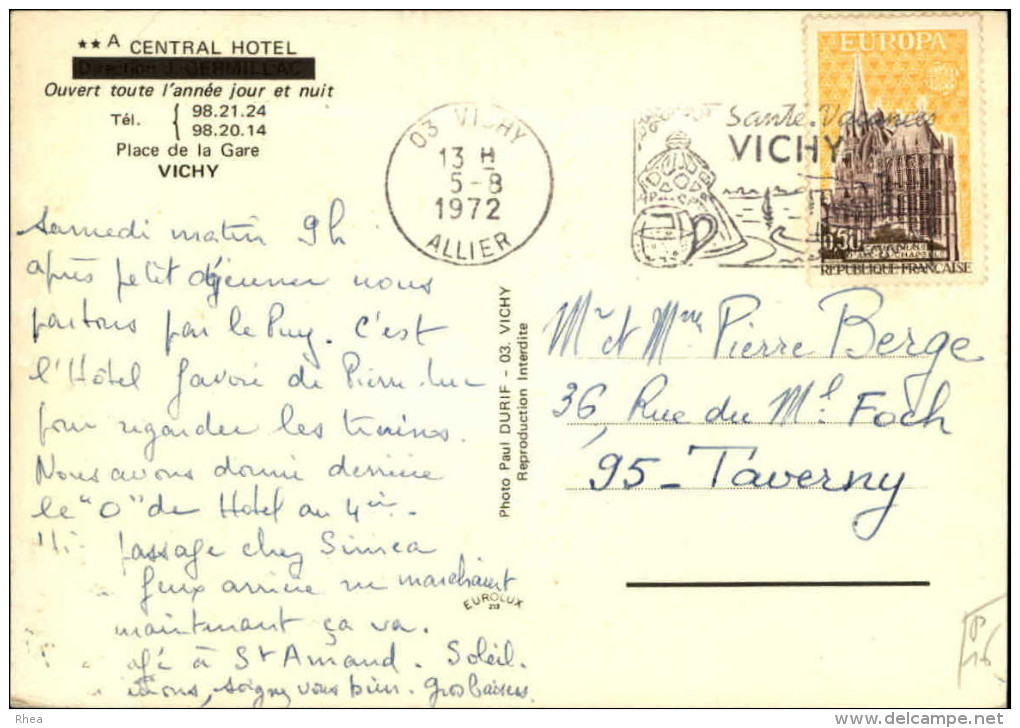 ★★A CENTRAL HOTEL
Direction J. GERMILLAC
Ouvert toute l'année jour et nuit
Tél. { 98.21.24
98.20.14
Place de la Gare
VICHY
Samedi matin 9h
après petit déjeuner nous
partons par le Puy. C'est
l'Hôtel favori de Pierre-Luc
pour regarder les trains.
Nous avons dormi derrière
le "O" de Hotel au 4ième.
passage chez Simca
feux arrière ne marchaient
maintenant ça va.
à St Amand. Soleil.
soignez vous bien. Gros baisers.
03 VICHY
13 H
5-8
1972
ALLIER
Santé. Vacances
VICHY
EUROPA
0,50
REPUBLIQUE FRANÇAISE
Photo Paul DURIF - 03. VICHY
Reproduction Interdite
EUROLUX
Mr et Mme Pierre Berge
36, Rue du Ml Foch
95 - Taverny
Rhea
www.delcampe.net